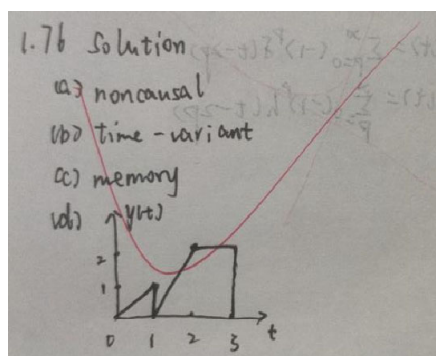 1.76 Solution
(a) noncausal
(b) time-variant
(c) memory
(d) y(t)
2
1
0 1 2 3 t